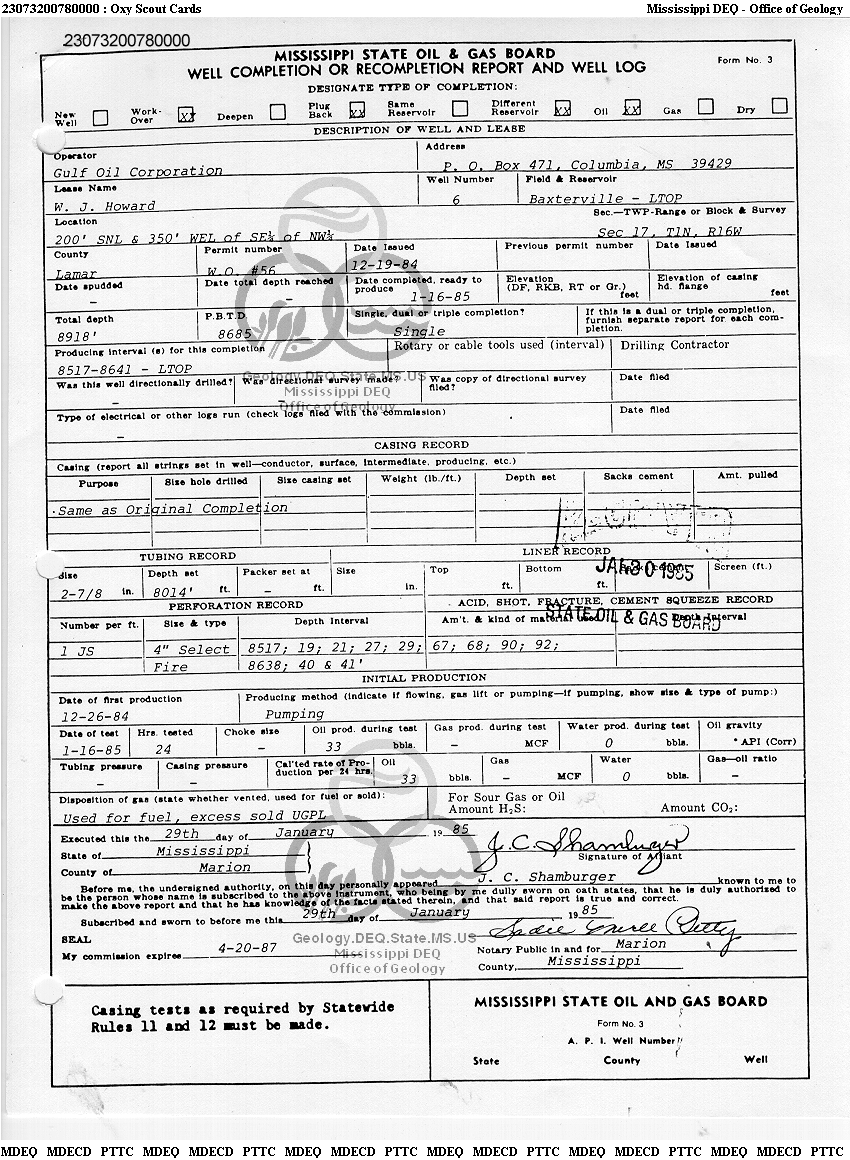 23073200780000 : Oxy Scout Cards Mississippi DEQ - Office of Geology
23073200780000
MISSISSIPPI STATE OIL & GAS BOARD
WELL COMPLETION OR RECOMPLETION REPORT AND WELL LOG Form No. 3
DESIGNATE TYPE OF COMPLETION:
New Well Work-Over XX Deepen Plug Back XX Same Reservoir Different Reservoir XX Oil XX Gas Dry
DESCRIPTION OF WELL AND LEASE
Operator Address
Gulf Oil Corporation P. O. Box 471, Columbia, MS 39429
Lease Name Well Number Field & Reservoir
W. J. Howard 6 Baxterville - LTOP
Location Sec.—TWP-Range or Block & Survey
200' SNL & 350' WEL of SE¼ of NW¼ Sec 17, T1N, R16W
County Permit number Date Issued Previous permit number Date Issued
Lamar W.O. #56 12-19-84
Date spudded Date total depth reached Date completed, ready to produce Elevation (DF, RKB, RT or Gr.) feet Elevation of casing hd. flange feet
- - 1-16-85
Total depth P.B.T.D. Single, dual or triple completion? If this is a dual or triple completion, furnish separate report for each completion.
8918' 8685 Single
Producing interval (s) for this completion Rotary or cable tools used (interval) Drilling Contractor
8517-8641 - LTOP
Geology.DEQ.State.MS.US
Mississippi DEQ
Office of Geology
Was this well directionally drilled? Was directional survey made? Was copy of directional survey filed? Date filed
- -
Type of electrical or other logs run (check logs filed with the commission) Date filed
-
CASING RECORD
Casing (report all strings set in well—conductor, surface, intermediate, producing, etc.)
Purpose Size hole drilled Size casing set Weight (lb./ft.) Depth set Sacks cement Amt. pulled
Same as Original Completion
TUBING RECORD LINER RECORD
Size Depth set Packer set at Size Top Bottom Screen (ft.)
JAN 30 1985
2-7/8 in. 8014' ft. - ft. in. ft. ft.
PERFORATION RECORD ACID, SHOT, FRACTURE, CEMENT SQUEEZE RECORD
STATE OIL & GAS BOARD
Number per ft. Size & type Depth Interval Am't. & kind of material used Depth Interval
1 JS 4" Select 8517; 19; 21; 27; 29; 67; 68; 90; 92;
Fire 8638; 40 & 41'
INITIAL PRODUCTION
Date of first production Producing method (indicate if flowing, gas lift or pumping—if pumping, show size & type of pump:)
12-26-84 Pumping
Date of test Hrs. tested Choke size Oil prod. during test Gas prod. during test Water prod. during test Oil gravity
1-16-85 24 - 33 bbls. - MCF 0 bbls. ° API (Corr)
Tubing pressure Casing pressure Cal'ted rate of Production per 24 hrs. Oil Gas Water Gas—oil ratio
- - 33 bbls. - MCF 0 bbls. -
Disposition of gas (state whether vented, used for fuel or sold): For Sour Gas or Oil
Amount H2S: Amount CO2:
Used for fuel, excess sold UGPL
Executed this the 29th day of January 19 85
State of Mississippi J. C. Shamburger
Signature of Affiant
County of Marion
Before me, the undersigned authority, on this day personally appeared J. C. Shamburger known to me to
be the person whose name is subscribed to the above instrument, who being by me dully sworn on oath states, that he is duly authorized to
make the above report and that he has knowledge of the facts stated therein, and that said report is true and correct.
Subscribed and sworn to before me this 29th day of January 19 85
SEAL
Geology.DEQ.State.MS.US
Mississippi DEQ
Office of Geology
My commission expires 4-20-87 Notary Public in and for Marion
County, Mississippi
Casing tests as required by Statewide
Rules 11 and 12 must be made.
MISSISSIPPI STATE OIL AND GAS BOARD
Form No. 3
A. P. I. Well Number
State County Well
MDEQ MDECD PTTC MDEQ MDECD PTTC MDEQ MDECD PTTC MDEQ MDECD PTTC MDEQ MDECD PTTC MDEQ MDECD PTTC